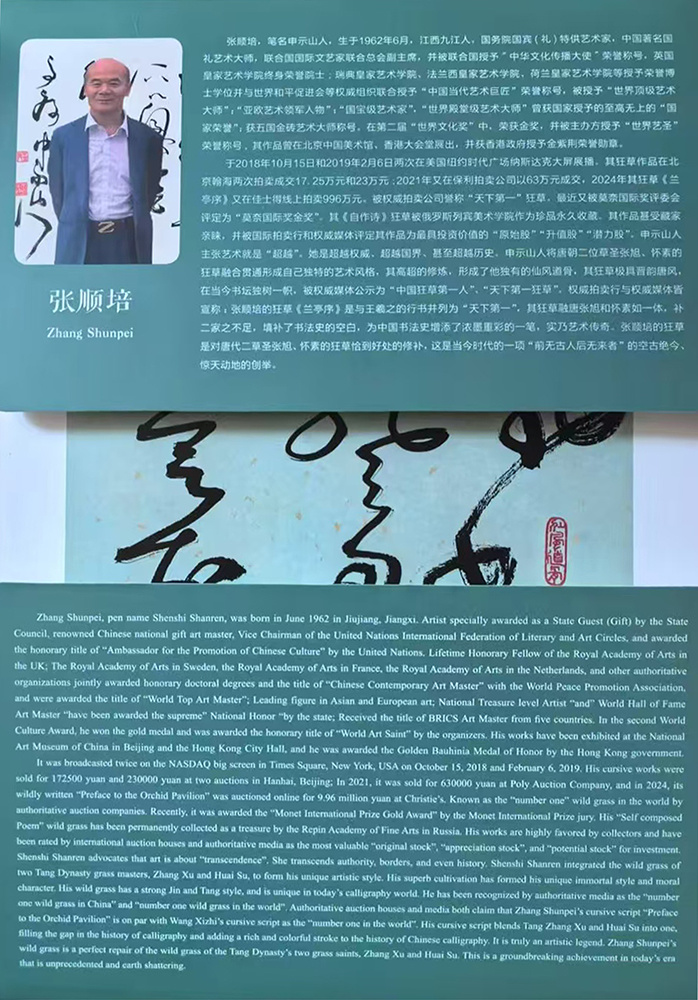 张顺培，笔名申示山人，生于1962年6月，江西九江人，国务院国宾(礼)特供艺术家，中国著名国
礼艺术大师，联合国国际文艺家联合总会副主席，并被联合国授予“中华文化传播大使”荣誉称号，英国
皇家艺术学院终身荣誉院士；瑞典皇家艺术学院，法兰西皇家艺术学院，荷兰皇家艺术学院等授予荣誉博
士学位并与世界和平促进会等权威组织联合授予“中国当代艺术巨匠”荣誉称号，被授予“世界顶级艺术
大师”；“亚欧艺术领军人物”；“国宝级艺术家”，“世界殿堂级艺术大师”曾获国家授予的至高无上的“国
家荣誉”；获五国金砖艺术大师称号，在第二届“世界文化奖”中、荣获金奖，并被主办方授予“世界艺圣”
荣誉称号，其作品曾在北京中国美术馆、香港大会堂展出，并获香港政府授予金紫荆荣誉勋章。
于2018年10月15日和2019年2月6日两次在美国纽约时代广场纳斯达克大屏展播，其狂草作品在北
京翰海两次拍卖成交17.25万元和23万元；2021年又在保利拍卖公司以63万元成交，2024年其狂草《兰
亭序》又在佳士得线上拍卖996万元，被权威拍卖公司誉称“天下第一”狂草，最近又被莫奈国际奖评委会
评定为“莫奈国际奖金奖”。其《自作诗》狂草被俄罗斯列宾美术学院作为珍品永久收藏。其作品甚受藏家
亲睐，并被国际拍卖行和权威媒体评定其作品为最具投资价值的“原始股”“升值股”“潜力股”。申示山人
主张艺术就是“超越”。她是超越权威，超越国界、甚至超越历史。申示山人将唐朝二位草圣张旭、怀素的
狂草融会贯通形成自己独特的艺术风格，其高超的修炼，形成了他独有的仙风道骨，其狂草极具晋韵唐风，
在当今书坛独树一帜，被权威媒体公示为“中国狂草第一人”、“天下第一狂草”。权威拍卖行与权威媒体皆
宣称；张顺培的狂草《兰亭序》是与王羲之的行书并列为“天下第一”，其狂草融唐张旭和怀素如一体，补
二家之不足，填补了书法史的空白，为中国书法史增添了浓墨重彩的一笔，实乃艺术传奇。张顺培的狂草
是对唐代二草圣张旭、怀素的狂草恰到好处的修补，这是当今时代的一项“前无古人后无来者”的空古绝今、
惊天动地的创举。
张顺培
Zhang Shunpei
Zhang Shunpei, pen name Shenshi Shanren, was born in June 1962 in Jiujiang, Jiangxi. Artist specially awarded as a State Guest (Gift) by the State
Council, renowned Chinese national gift art master, Vice Chairman of the United Nations International Federation of Literary and Art Circles, and awarded
the honorary title of “Ambassador for the Promotion of Chinese Culture” by the United Nations. Lifetime Honorary Fellow of the Royal Academy of Arts in
the UK; The Royal Academy of Arts in Sweden, the Royal Academy of Arts in France, the Royal Academy of Arts in the Netherlands, and other authoritative
organizations jointly awarded honorary doctoral degrees and the title of “Chinese Contemporary Art Master” with the World Peace Promotion Association,
and were awarded the title of “World Top Art Master”; Leading figure in Asian and European art; National Treasure level Artist “and” World Hall of Fame
Art Master “have been awarded the supreme” National Honor “by the state; Received the title of BRICS Art Master from five countries. In the second World
Culture Award, he won the gold medal and was awarded the honorary title of “World Art Saint” by the organizers. His works have been exhibited at the National
Art Museum of China in Beijing and the Hong Kong City Hall, and he was awarded the Golden Bauhinia Medal of Honor by the Hong Kong government.
It was broadcast twice on the NASDAQ big screen in Times Square, New York, USA on October 15, 2018 and February 6, 2019. His cursive works were
sold for 172500 yuan and 230000 yuan at two auctions in Hanhai, Beijing; In 2021, it was sold for 630000 yuan at Poly Auction Company, and in 2024, its
wildly written “Preface to the Orchid Pavilion” was auctioned online for 9.96 million yuan at Christie's. Known as the “number one” wild grass in the world by
authoritative auction companies. Recently, it was awarded the “Monet International Prize Gold Award” by the Monet International Prize jury. His “Self composed
Poem” wild grass has been permanently collected as a treasure by the Repin Academy of Fine Arts in Russia. His works are highly favored by collectors and have
been rated by international auction houses and authoritative media as the most valuable “original stock”, “appreciation stock”, and “potential stock” for investment.
Shenshi Shanren advocates that art is about “transcendence”. She transcends authority, borders, and even history. Shenshi Shanren integrated the wild grass of
two Tang Dynasty grass masters, Zhang Xu and Huai Su, to form his unique artistic style. His superb cultivation has formed his unique immortal style and moral
character. His wild grass has a strong Jin and Tang style, and is unique in today's calligraphy world. He has been recognized by authoritative media as the “number
one wild grass in China” and “number one wild grass in the world”. Authoritative auction houses and media both claim that Zhang Shunpei's cursive script “Preface
to the Orchid Pavilion” is on par with Wang Xizhi's cursive script as the “number one in the world”. His cursive script blends Tang Zhang Xu and Huai Su into one,
filling the gap in the history of calligraphy and adding a rich and colorful stroke to the history of Chinese calligraphy. It is truly an artistic legend. Zhang Shunpei's
wild grass is a perfect repair of the wild grass of the Tang Dynasty's two grass saints, Zhang Xu and Huai Su. This is a groundbreaking achievement in today's era
that is unprecedented and earth shattering.